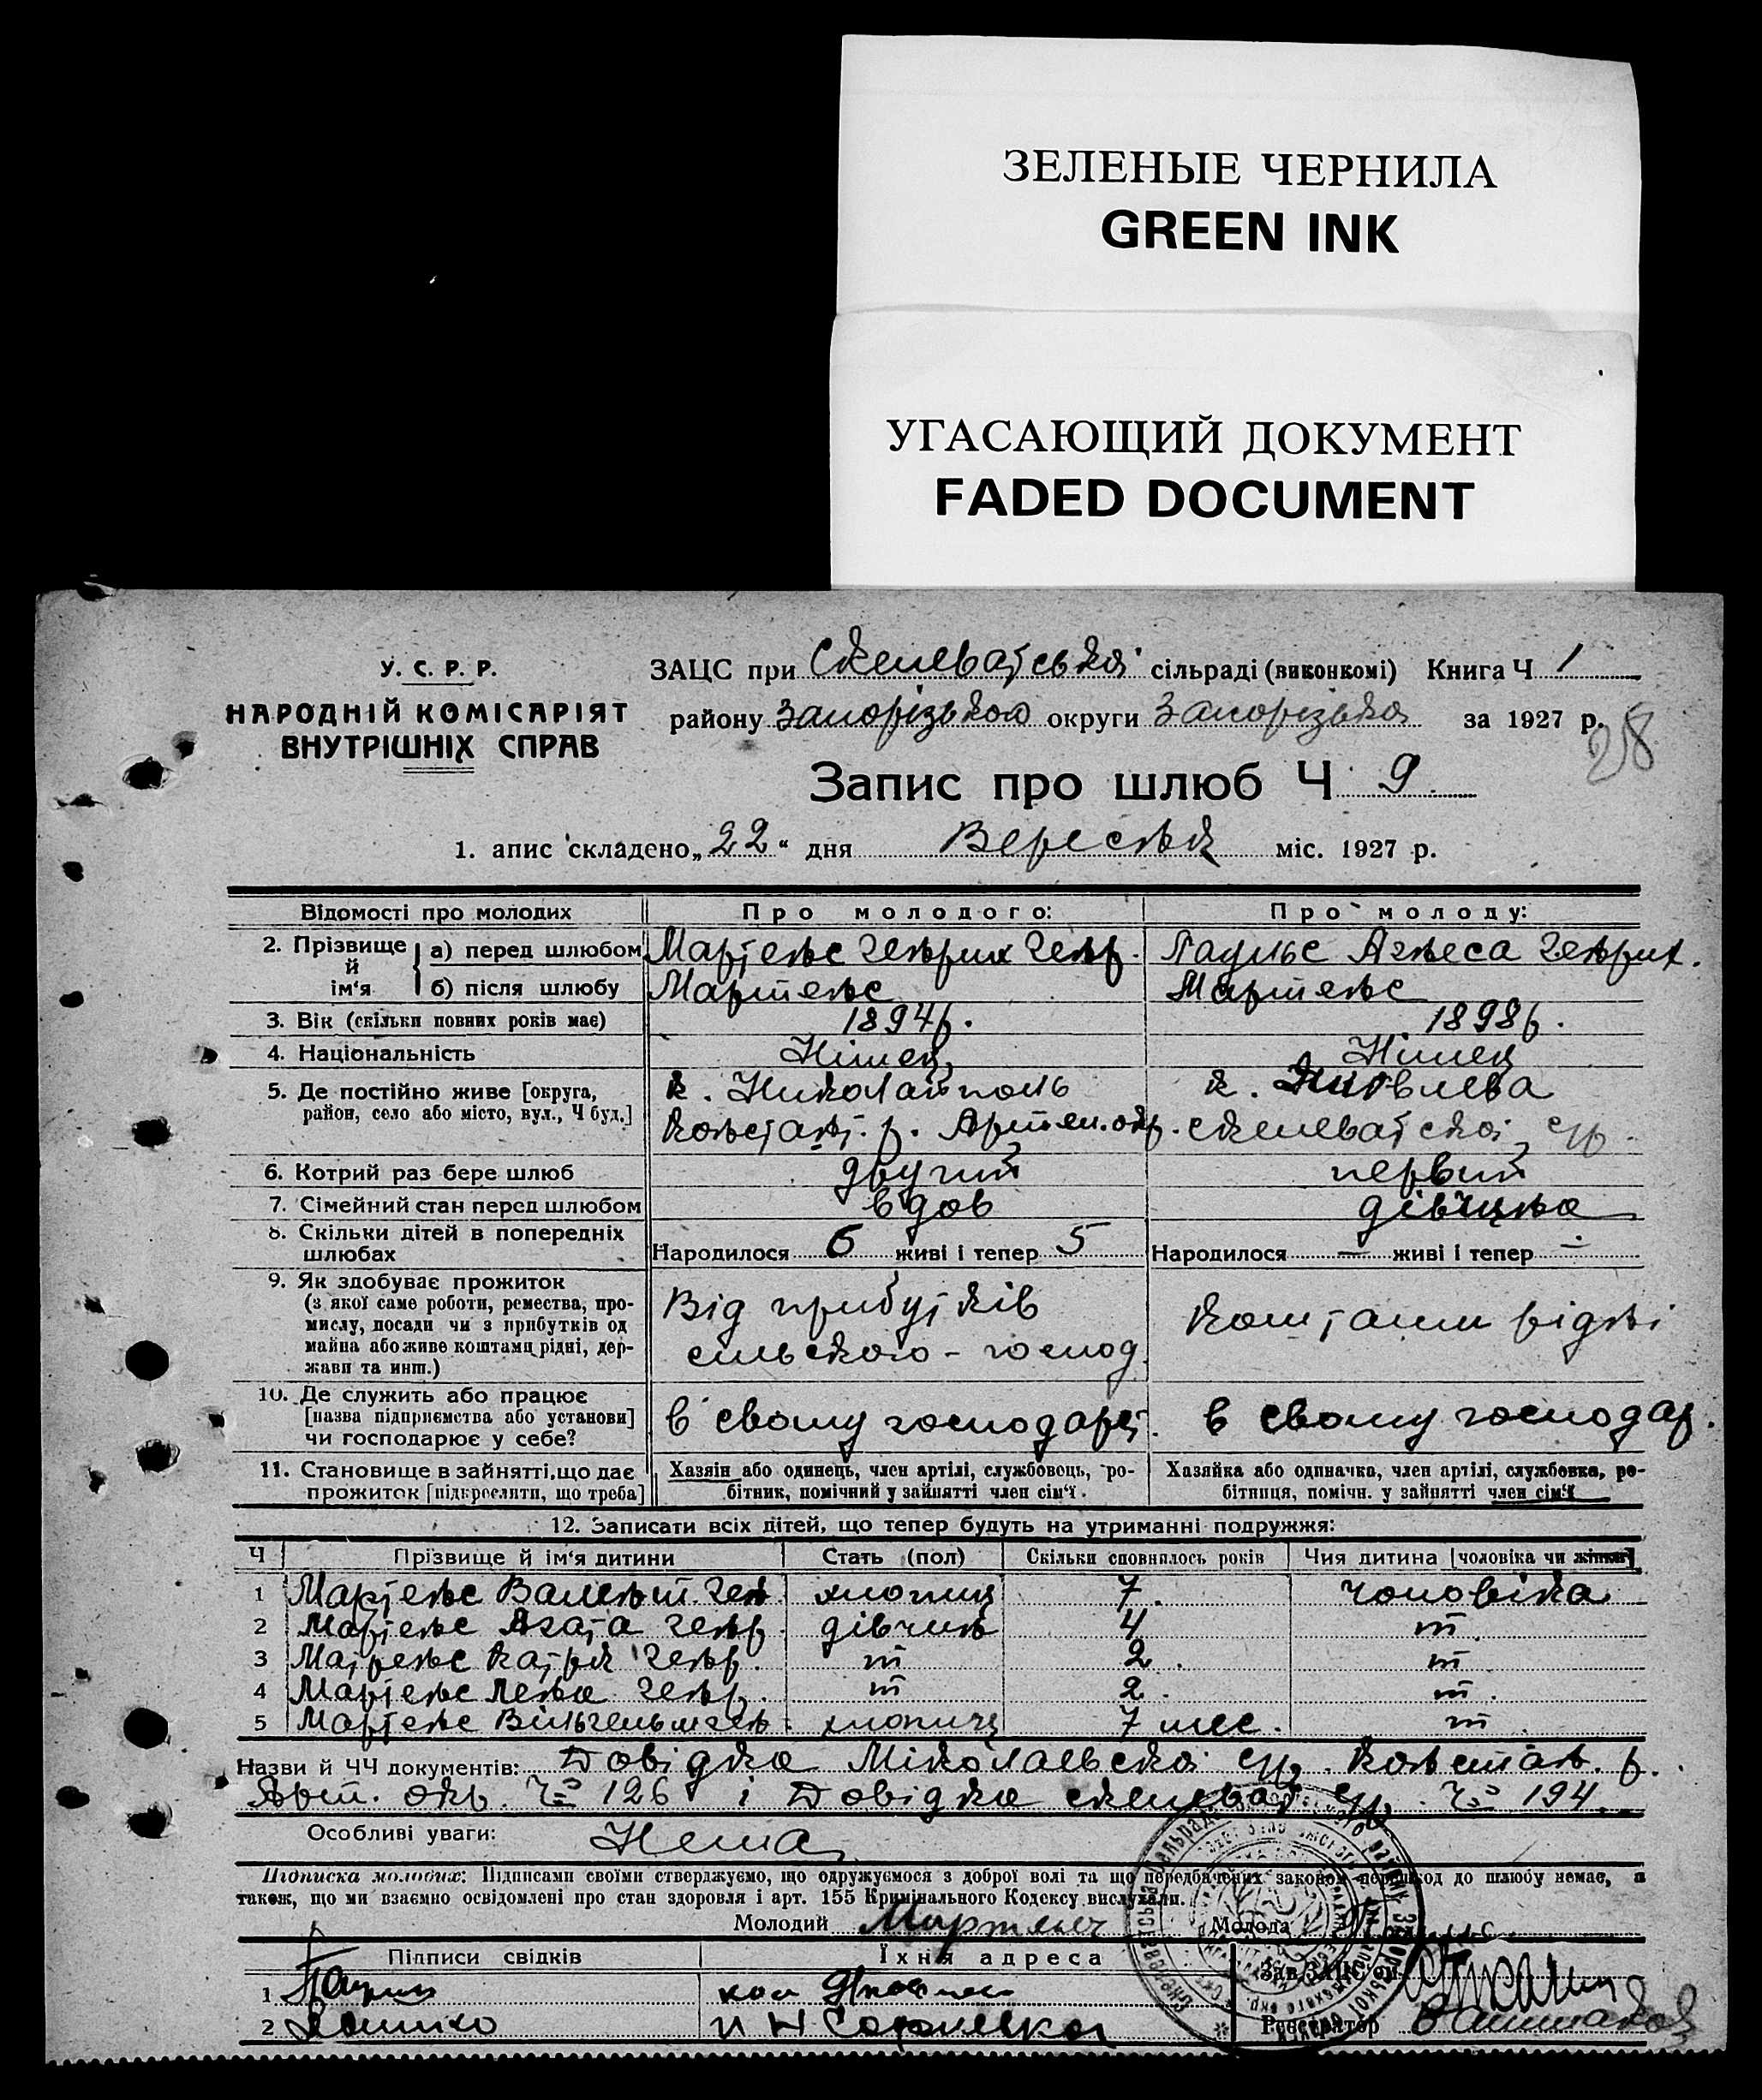 ЗЕЛЕНЫЕ ЧЕРНИЛА
GREEN INK
УГАСАЮЩИЙ ДОКУМЕНТ
FADED DOCUMENT
У. С. Р. Р.
НАРОДНІЙ КОМІСАРІЯТ
ВНУТРІШНІХ СПРАВ
ЗАЦС при Скелеватській сільраді (виконкомі) Книга Ч 1
району Запорізького округи Запорізької за 1927 р.
Запис про шлюб Ч 9
1. апис складено „22“ дня Вересня міс. 1927 р.
Відомості про молодих Про молодого: Про молоду:
2. Прізвище й ім'я а) перед шлюбом Мартенс Генрих Генр. Паульс Агнеса Генрих.
б) після шлюбу Мартенс Мартенс
3. Вік (скільки повних років має) 1894р. 1898р.
4. Національність Німец Німец
5. Де постійно живе [округа, район, село або місто, вул., Ч буд.]
к. Николайполь
Констант. р. Артем. окр.
к. Яковлева
Скелеватскої с/р.
6. Котрий раз бере шлюб другий первий
7. Сімейний стан перед шлюбом вдов дівчина
8. Скільки дітей в попередніх шлюбах Народилося 6 живі і тепер 5 Народилося — живі і тепер —
9. Як здобуває прожиток
(з якої саме роботи, ремества, про-
мислу, посади чи з прибутків од
майна або живе коштами рідні, дер-
жави та инш.)
Від прибутків
сильского - господ.
коштами рідні
10. Де служить або працює
[назва підприємства або установи]
чи господарює у себе?
в свому господарст.
в свому господар.
11. Становище в зайнятті, що дає
прожиток [підкреслити, що треба]
Хазяін або одинець, член артілі, службовець, ро-
бітник, помічний у зайнятті член сім‘ї.
Хазяйка або одиначка, член артілі, службовка, ро-
бітниця, помічн. у зайнятті член сім‘ї
12. Записати всіх дітей, що тепер будуть на утриманні подружжя:
Ч Прізвище й ім‘я дитини Стать (пол) Скільки сповнилось років Чия дитина [чоловіка чи жінки]
1 Мартенс Валент. Ген хлопиц 7. чоловіка
2 Мартенс Агата Генр. дівчин 4 т
3 Матренс Катря Генр. т 2. т
4 Мартенс Лена Генр. т 2. т.
5 Мартенс Вільгельм Ген. хлопиц 7 мес. т.
Назви й ЧЧ документів: Довідка Міколаевскої с/р. Констан. р.
Арт. окр. Ч= 126 і Довідка скелеват с/р. Ч= 194.
Особливі уваги: Нема
Підписка молодих: Підписами своїми стверджуємо, що одружуємося з доброї волі та що передбачених законом перешкод до шлюбу немає, а
також, що ми взаємно освідомлені про стан здоровля і арт. 155 Кримінального Кодексу вислухали.
Молодий Мартенс Молода
Підписи свідків Їхня адреса Зав. ЗАЦС'ом
1
2 Реєстратор